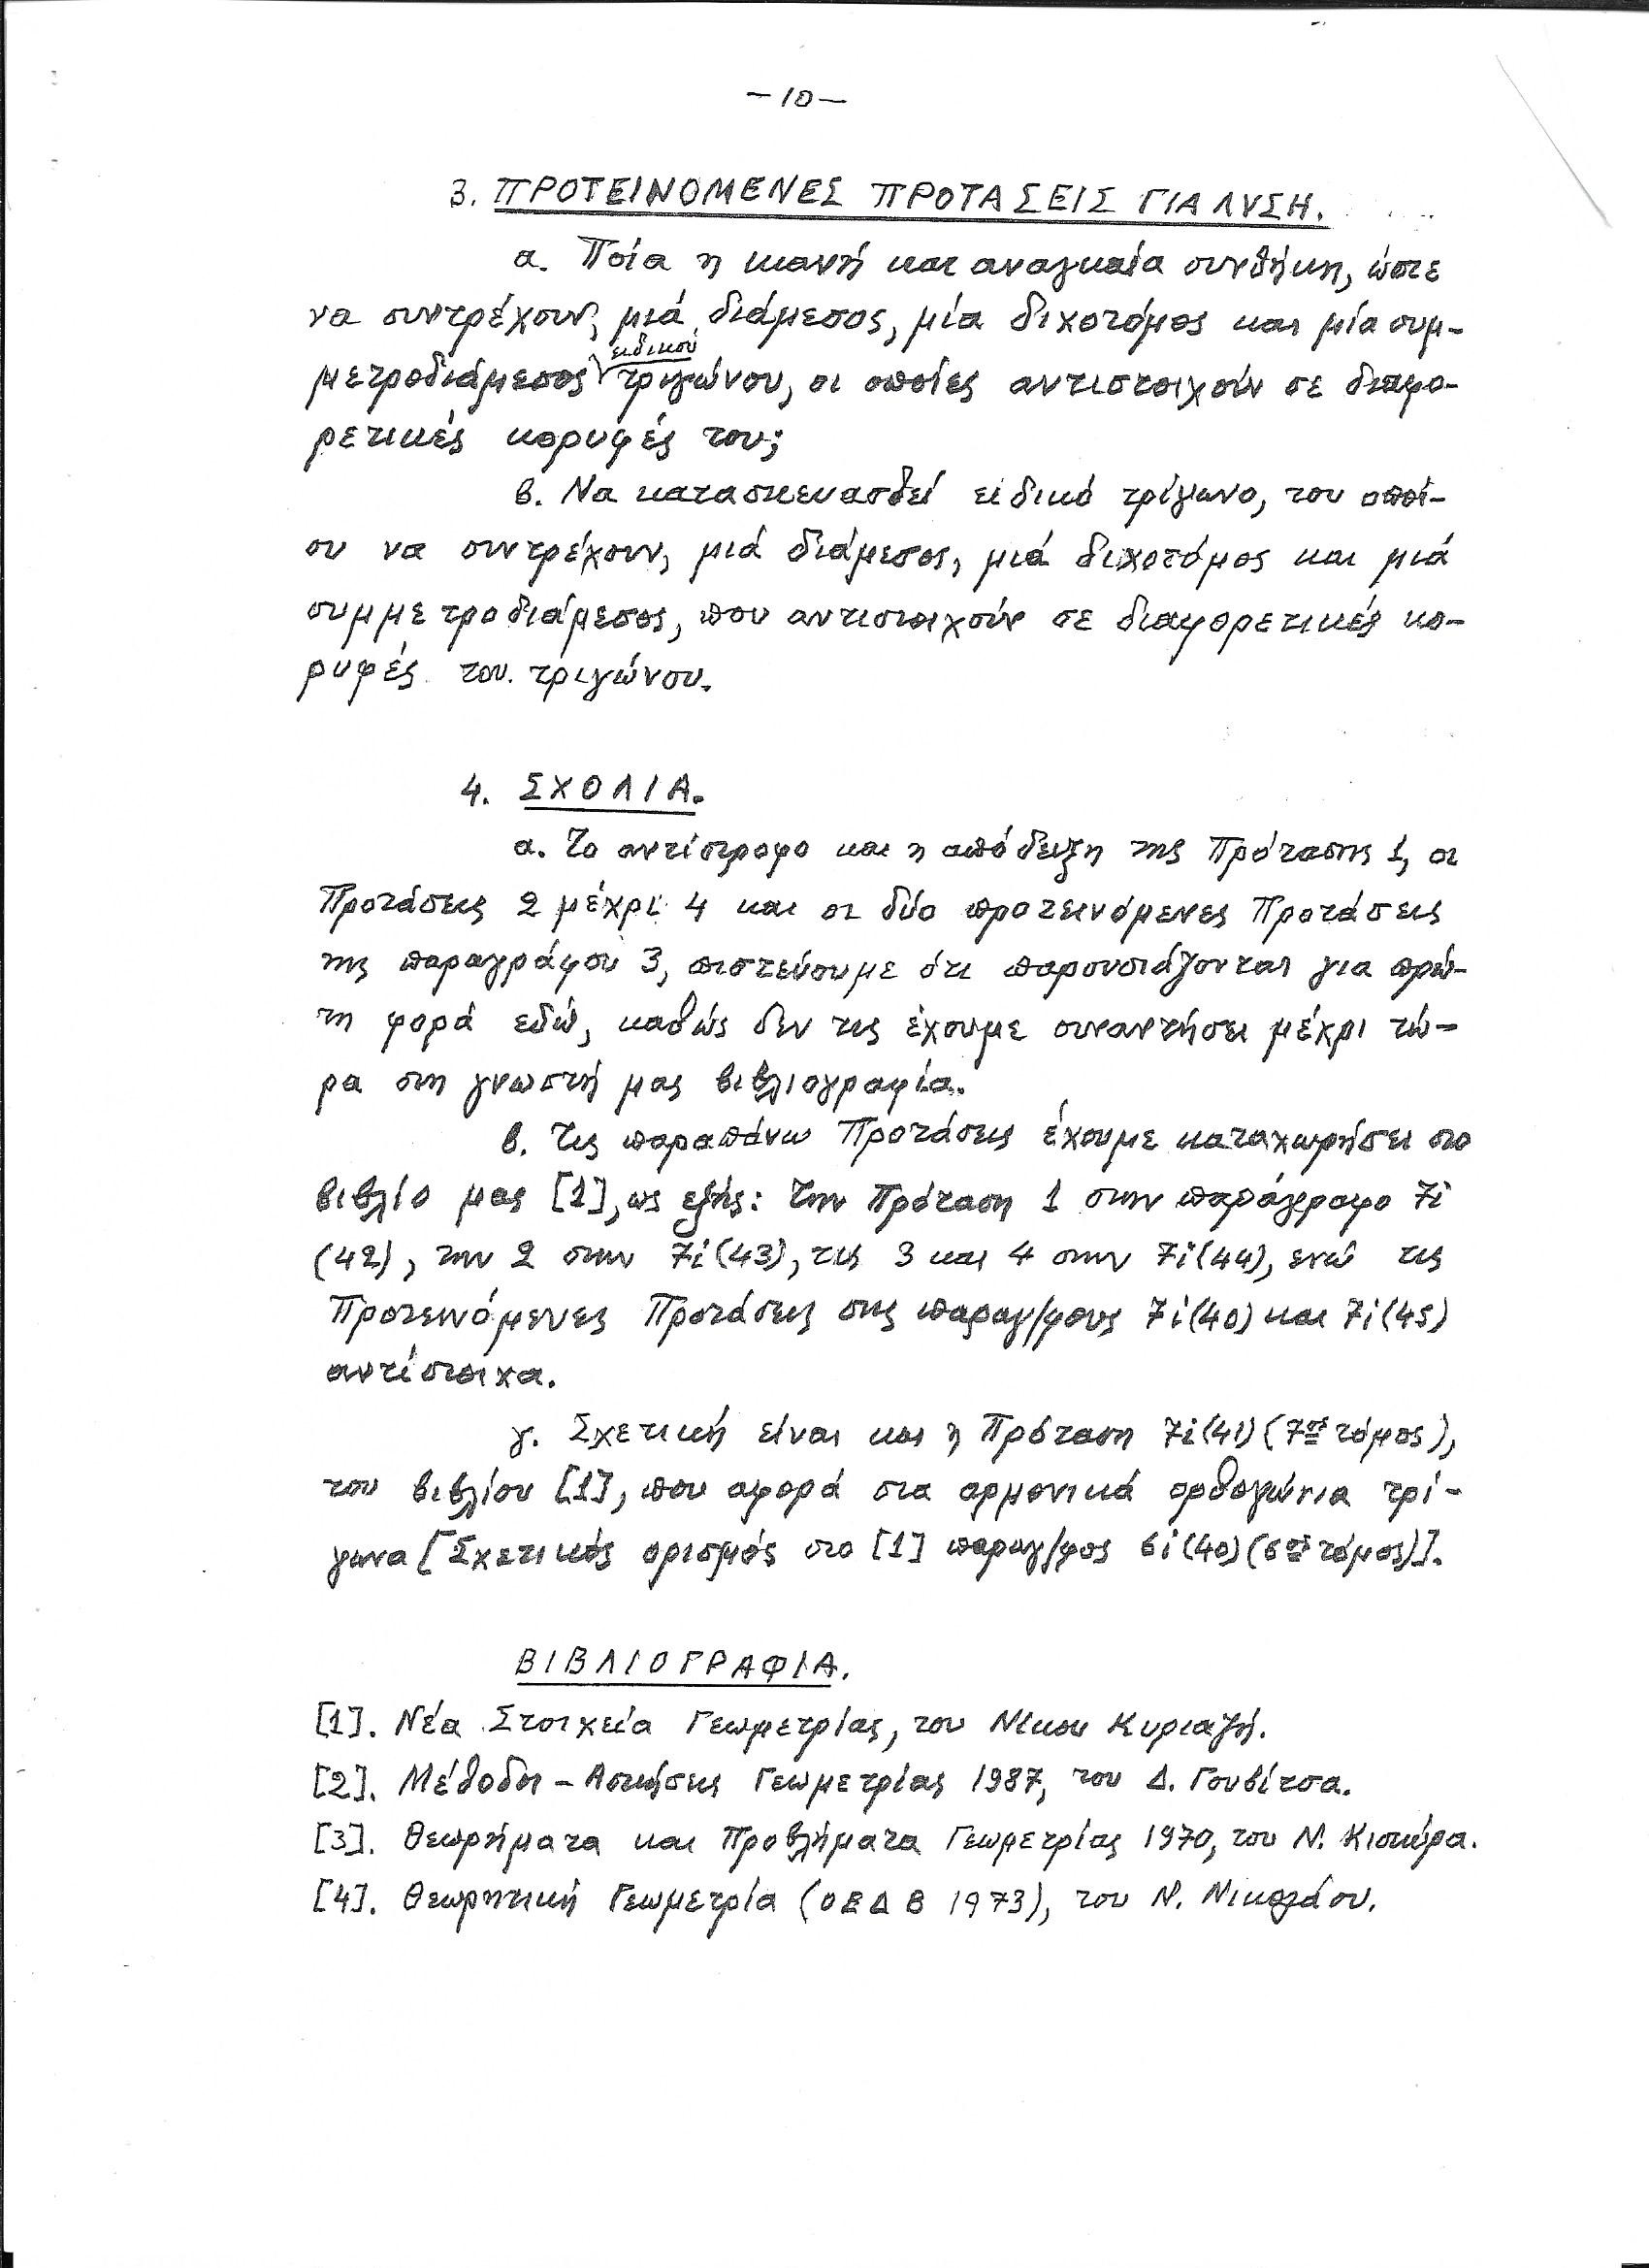 -10-
3. ΠΡΟΤΕΙΝΟΜΕΝΕΣ ΠΡΟΤΑΣΕΙΣ ΓΙΑ ΛΥΣΗ.
α. Ποία η ικανή και αναγκαία συνθήκη, ώστε
να συντρέχουν, μιά διάμεσος, μία διχοτόμος και μία συμ-
ειδικού
μετροδιάμεσος τριγώνου, οι οποίες αντιστοιχούν σε διαφο-
ρετικές κορυφές του;
β. Να κατασκευασθεί ειδικό τρίγωνο, του οποί-
ου να συντρέχουν, μιά διάμεσος, μιά διχοτόμος και μιά
συμμετροδιάμεσος, που αντιστοιχούν σε διαφορετικές κο-
ρυφές του τριγώνου.
4. ΣΧΟΛΙΑ.
α. Το αντίστροφο και η απόδειξη της Πρότασης 1, οι
Προτάσεις 2 μέχρι 4 και οι δύο προτεινόμενες Προτάσεις
της παραγράφου 3, πιστεύουμε ότι παρουσιάζονται για πρώ-
τη φορά εδώ, καθώς δεν τις έχουμε συναντήσει μέχρι τώ-
ρα στη γνωστή μας βιβλιογραφία.
β. Τις παραπάνω Προτάσεις έχουμε καταχωρήσει στο
βιβλίο μας [1], ως εξής: Την Πρόταση 1 στην παράγραφο 7i
(42), την 2 στην 7i(43), τις 3 και 4 στην 7i(44), ενώ τις
Προτεινόμενες Προτάσεις στις παραγ/φους 7i(40) και 7i(45)
αντίστοιχα.
γ. Σχετική είναι και η Πρόταση 7i(41) (7ος τόμος),
του βιβλίου [1], που αφορά στα αρμονικά ορθογώνια τρί-
γωνα [Σχετικός ορισμός στο [1] παραγ/φος 6i(40) (6ος τόμος)].
ΒΙΒΛΙΟΓΡΑΦΙΑ.
[1]. Νέα Στοιχεία Γεωμετρίας, του Νίκου Κυριαζή.
[2]. Μέθοδοι - Ασκήσεις Γεωμετρίας 1987, του Δ. Γουβίτσα.
[3]. Θεωρήματα και Προβλήματα Γεωμετρίας 1970, του Ν. Κισκύρα.
[4]. Θεωρητική Γεωμετρία (ΟΕΔΒ 1973), του Ν. Νικολάου.